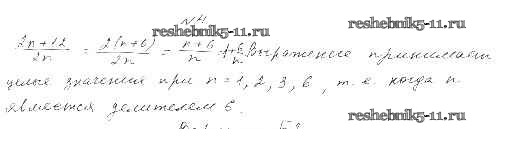 №4.
reshebnik5-11.ru reshebnik5-11.ru
(2n+12)/2n = 2(n+6)/2n = (n+6)/n = 1+6/n Выражение принимает
целые значения при n = 1, 2, 3, 6, т.е. когда n
является делителем 6.
reshebnik5-11.ru